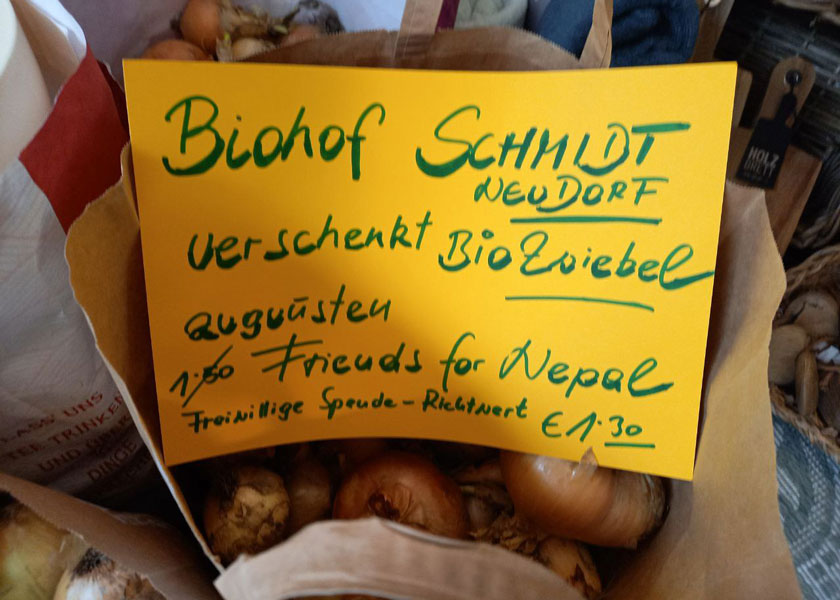 Biohof SCHMIDT
NEUDORF
verschenkt BioZwiebel
zugunsten
1.50 Friends for Nepal
Freiwillige Spende - Richtwert € 1.30
HOLZ
BRETT
LASS' UNS
TEE TRINKEN
UND
DINGE